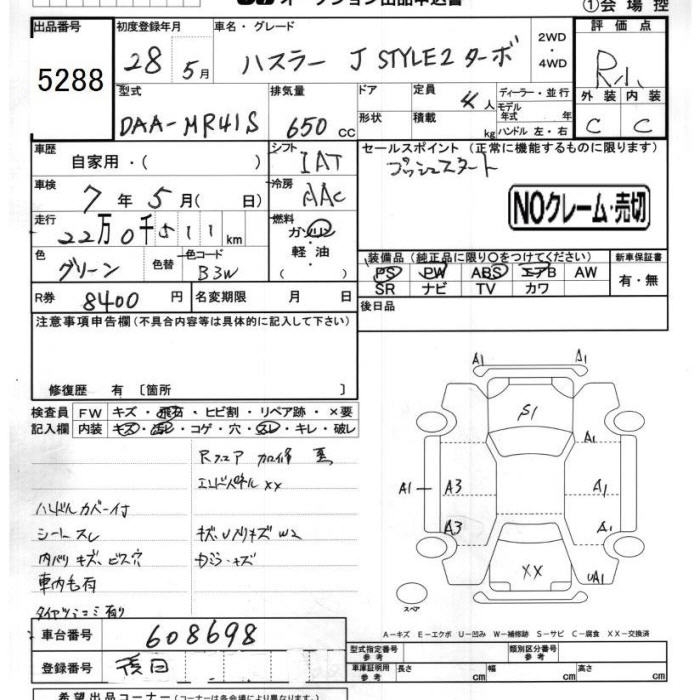 オークション出品申込書
①会場控
出品番号 初度登録年月 車名・グレード 評価点
5288 28 5月 ハスラー J STYLE2 ターボ 2WD・4WD
型式 排気量 ドア 定員 4人 ディーラー・並行 外装 内装
モデル年式 年
DAA-MR41S 650cc 形状 積載 kg ハンドル 左・右 C C
車歴 自家用・( ) シフト IAT セールスポイント(正常に機能するものに限ります)
プッシュスタート
車検 7年5月( 日) 冷房 AAC
NOクレーム・売切
走行 22万0千511km 燃料 ガソリン・軽油
色 グリーン 色替 色コード B3W
装備品(純正品に限り○をつけてください) 新車保証書
PS PW ABS エアB AW 有・無
SR ナビ TV カワ
R券 8400円 名変期限 月 日 後日品
注意事項申告欄(不具合内容等は具体的に記入して下さい)
修復歴 有 [箇所 ]
検査員記入欄 FW キズ・飛石・ヒビ割・リペア跡・×要
内装 キズ・汚レ・コゲ・穴・スレ・キレ・破レ
Rフェア 加修
エンドパネル XX
ハンドルカバー付
シートスレ キズ、Uバリキズ W2
内バリ キズ、ビス穴
車内毛有
タイヤツミコミ有り
A1 A1
S1
A1
A1 A3 A1
A3 A1
XX UA1
スペア
A-キズ E-エクボ U-凹み W-補修跡 S-サビ C-腐食 XX-交換済
車台番号 608698
登録番号 後日
型式指定番号 参考 類別区分番号 参考
車庫証明用 参考 長さ cm 幅 cm 高さ cm
希望出品コーナー(コーナーは各会場により異なります。)